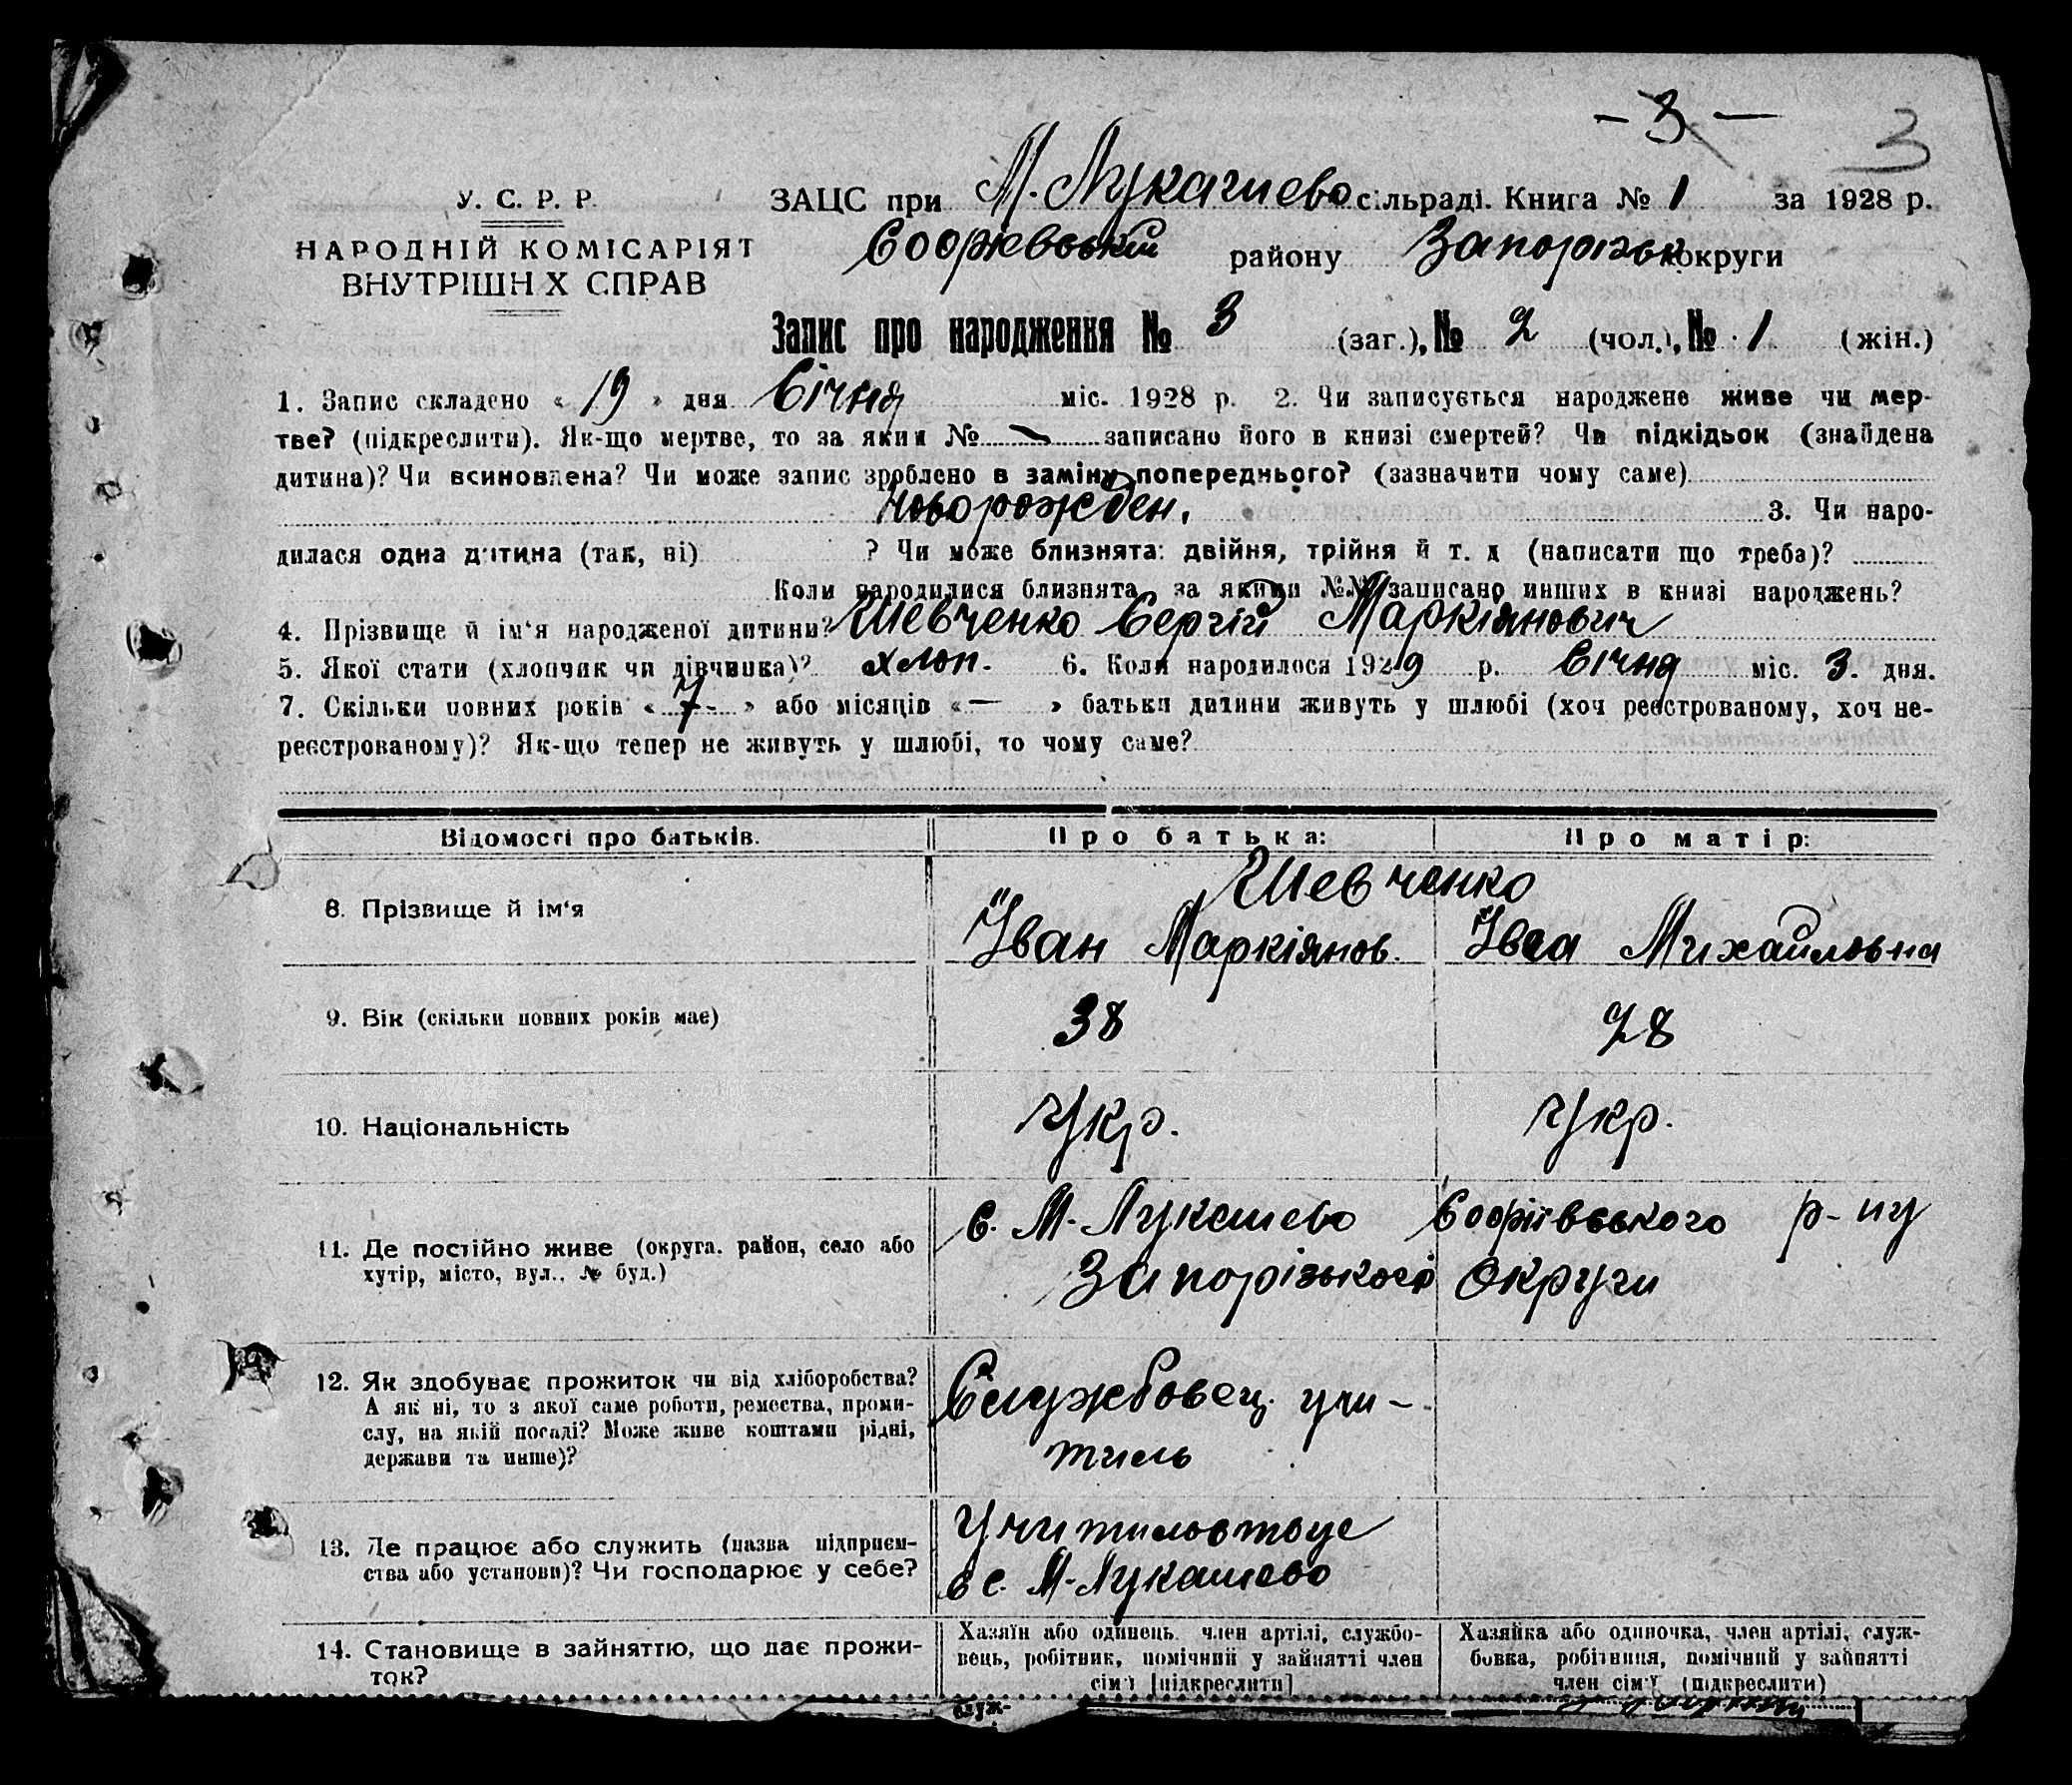 - 3 -
3
У. С. Р. Р.
НАРОДНІЙ КОМІСАРІЯТ
ВНУТРІШН Х СПРАВ
ЗАЦС при М. Лукашево сільраді. Книга № 1 за 1928 р.
району Запорізьк округи
Запис про народження № 3 (заг.), № 2 (чол.), № 1 (жін.)
1. Запис складено « 19 » дня Січня міс. 1928 р. 2. Чи записується народжене живе чи мер-
тве? (підкреслити). Як-що мертве, то за яким № — записано його в книзі смертей? Чи підкідьок (знайдена
дитина)? Чи всиновлена? Чи може запис зроблено в заміну попереднього? (зазначити чому саме)
Новорожден. 3. Чи наро-
дилася одна дитина (так, ні) ? Чи може близнята: двійня, трійня й т. д (написати що треба)?
Коли народилися близнята, за якими №№ записано инших в книзі народжень?
4. Прізвище й ім'я народженої дитини? Шевченко Сергій Маркіянович
5. Якої стати (хлопчик чи дівчинка)? хлоп. 6. Коли народилося 1929 р. Січня міс. 3. дня.
7. Скільки повних років « 7 - » або місяців « — » батьки дитини живуть у шлюбі (хоч реєстрованому, хоч не-
реєстрованому)? Як-що тепер не живуть у шлюбі, то чому саме?
Відомості про батьків. Про батька: Про матір:
Шевченко
8. Прізвище й ім'я Іван Маркіянов. Михайловна
9. Вік (скільки повних років має) 38 28
10. Національність Укр. Укр.
11. Де постійно живе (округа. район, село або
хутір, місто, вул., № буд.)
с. М. Лукашево Софіївського р-ну
Запорізького Округи
12. Як здобуває прожиток чи від хліборобства?
А як ні, то з якої саме роботи, ремества, проми-
слу, на якій посаді? Може живе коштами рідні,
держави та инше)?
Службовец. учи-
тиль
13. Де працює або служить (назва підприєм-
ства або установи)? Чи господарює у себе?
в с. М. Лукашево
14. Становище в зайняттю, що дає прожи-
ток?
Хазяїн або одинець. член артілі, службо-
вець, робітник, помічний у зайнятті член
сім'ї [підкреслити]
Хазяйка або одиночка, член артілі, служ-
бовка, робітниця, помічний у зайнятті
член сім'ї (підкреслити)
служ-